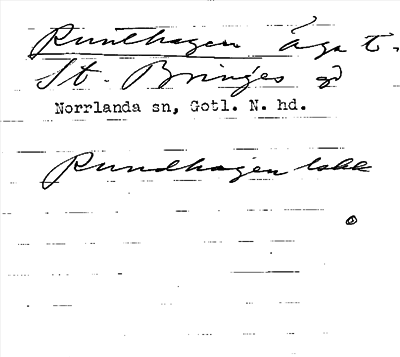 Runthagen äga t.
St. Bringes gd
Norrlanda sn, Gotl. N. hd.
Rundhagen lokk